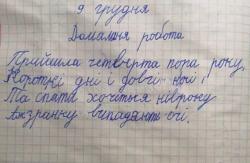 9 грудня
Домашня робота
Прийшла четверта пора року,
Короткі дні і довгі ночі,
Та спати хочеться нівроку
Аж зранку випадають очі.